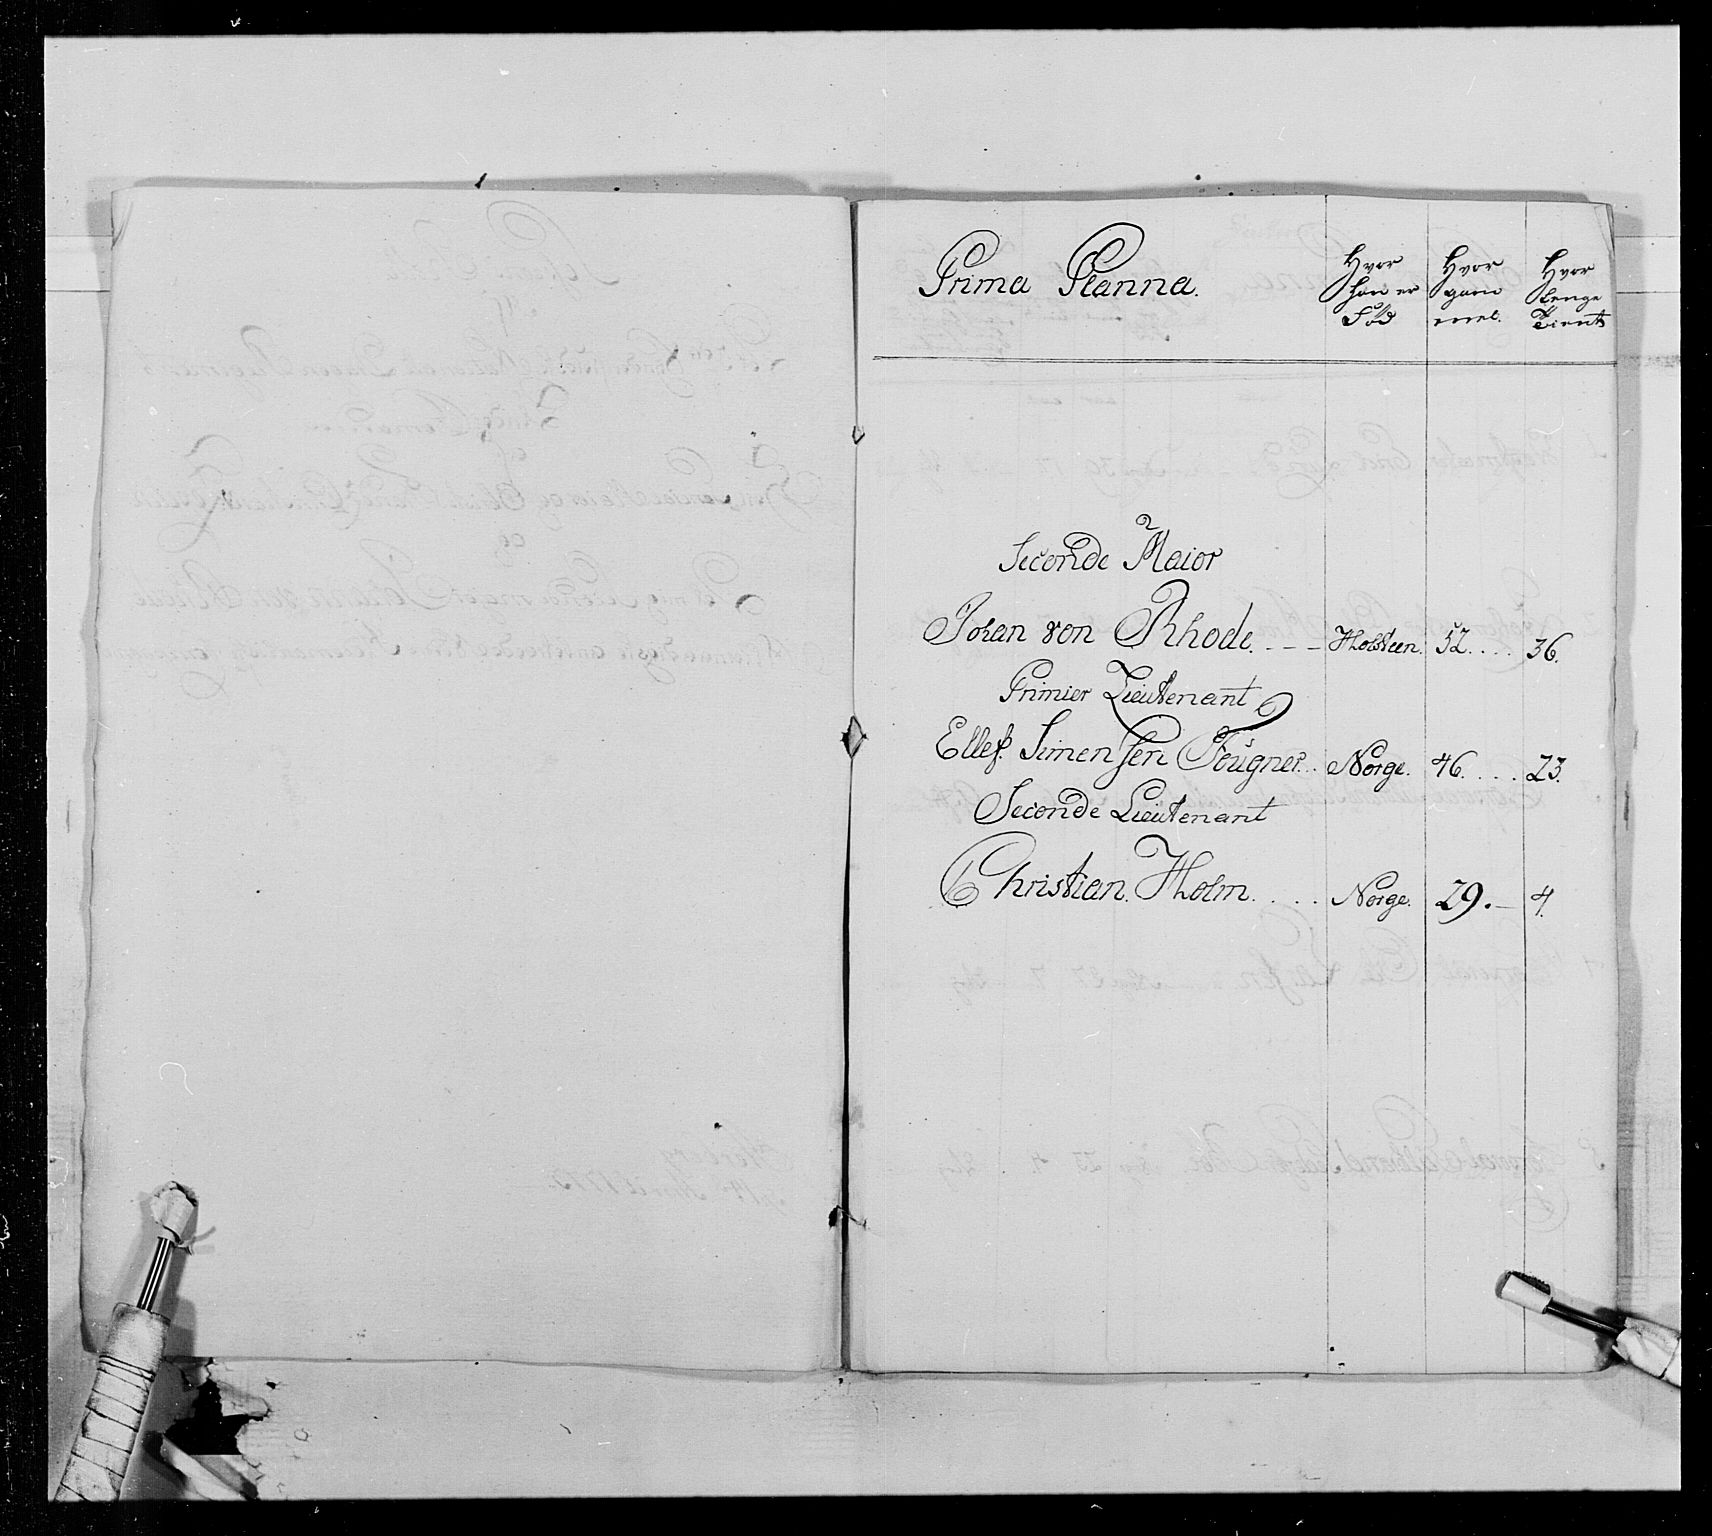 Prima Planna.
Hvor han er Född
Hvor gam mel.
Hvor Lenge Tient
Seconde Maior
Johan von Rhode. - - - Holsteen. 52. . . . 36.
Primier Lieutenant
Ellef. Simensen Fougner. . Norge. 46. . . . 23.
Seconde Lieutenant
Christian. Holm. . . . Norge. 29. - 4.